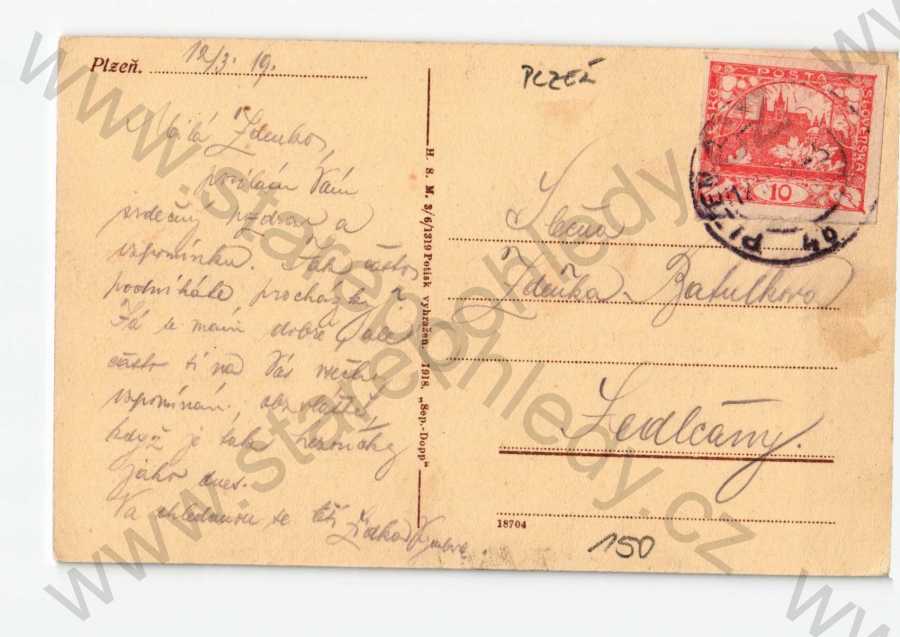 Plzeň. 12/3. 19.
PLZEŇ
Milá Zdenko,
posílám Vám
srdečný pozdrav a
vzpomínku. Tak často
podnikáte procházky?
Já se mám dobře, ale
často si na Vás
vzpomínám, obzvláště,
když je tak
jako dnes.
Na shledanou se těší
H. S. M. 3/6/1319 Potisk vyhražen. 1918. „Sep.-Dopp"
POŠTA
ČESKO
SLOVENSKÁ
10
PLZEŇ
Slečna
Zdeňka Batulkova
Sedlčany.
18704
150
www.starepohledy.cz